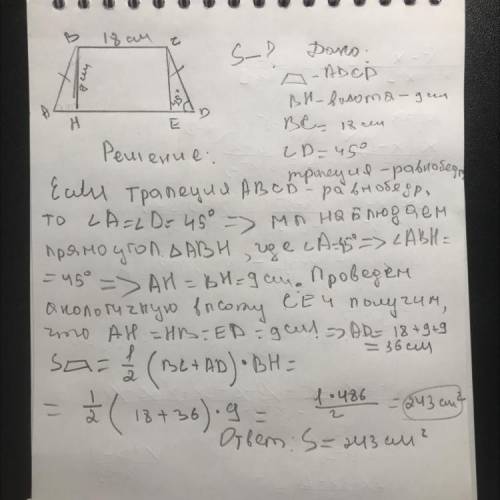 B 18 см C
S-?
Дано:
9 см
45°
A H E D
▱-ABCD
BH-высота-9см
BC= 18см
∠D=45°
трапеция-равнобедр.
Решение:
Если трапеция ABCD-равнобедр,
то ∠A=∠D=45° => мы наблюдаем
прямоугол. ΔABH, где ∠A=45° => ∠ABH=
=45° => AH=BH=9см. Проведём
аналогичную высоту CE и получим,
что AH=HB=ED=9см => AD= 18+9+9
=36см
S▱ = 1/2 (BC+AD)·BH=
= 1/2 (18+36)·9= 1·486/2 = 243см²
Ответ: S=243см²